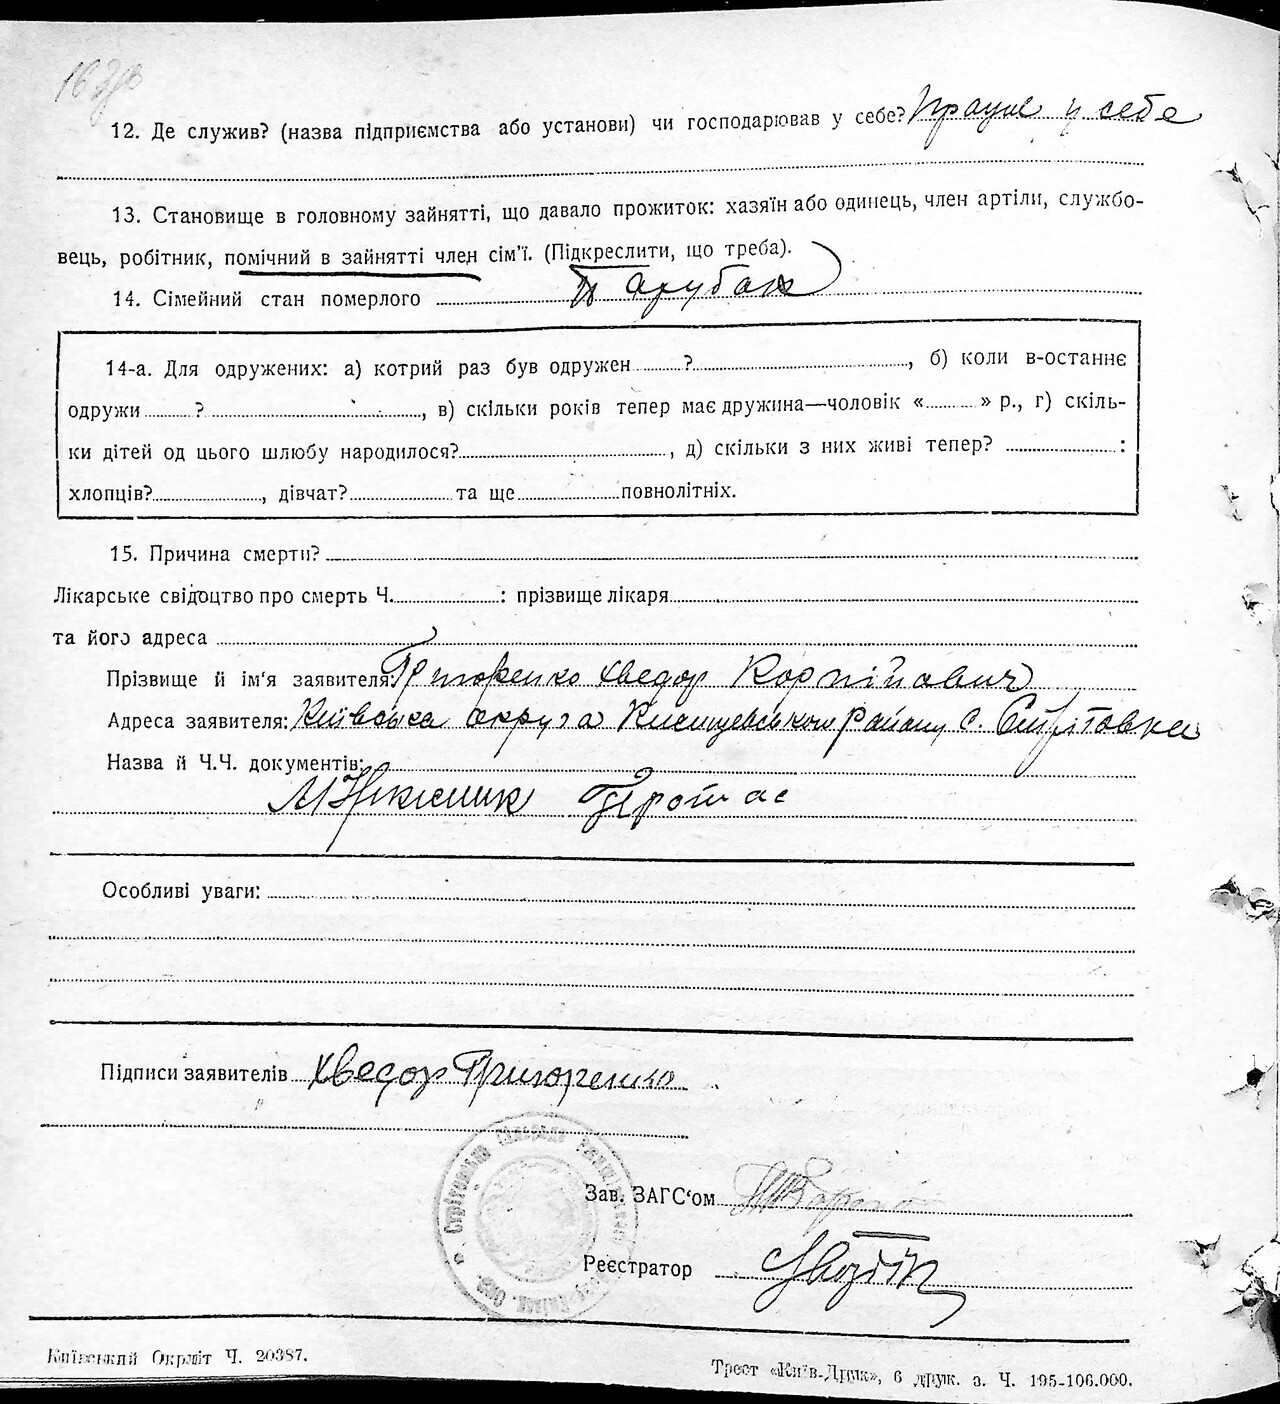 16 зв
12. Де служив? (назва підприємства або установи) чи господарював у себе? Працює у себе
13. Становище в головному зайнятті, що давало прожиток: хазяїн або одинець, член артіли, службо-
вець, робітник, помічний в зайнятті член сім'ї. (Підкреслити, що треба).
14. Сімейний стан померлого Парубок
14-а. Для одружених: а) котрий раз був одружен ? , б) коли в-останнє
одружи ? , в) скільки років тепер має дружина—чоловік « » р., г) скіль-
ки дітей од цього шлюбу народилося? , д) скільки з них живі тепер? :
хлопців? , дівчат? та ще повнолітніх.
15. Причина смерти?
Лікарське свідоцтво про смерть Ч. : прізвище лікаря
та його адреса
Прізвище й ім'я заявителя: Григоренко Хведор Корнійович
Адреса заявителя: Київська округа району с.
Назва й Ч.Ч. документів:
Протас
Особливі уваги:
Підписи заявителів Хведор Григоренко
Зав. ЗАГС'ом
Реєстратор
Київський Окрліт Ч. 20387.
Трест «Київ-Друк», 6 друк. з. Ч. 195-106.000.